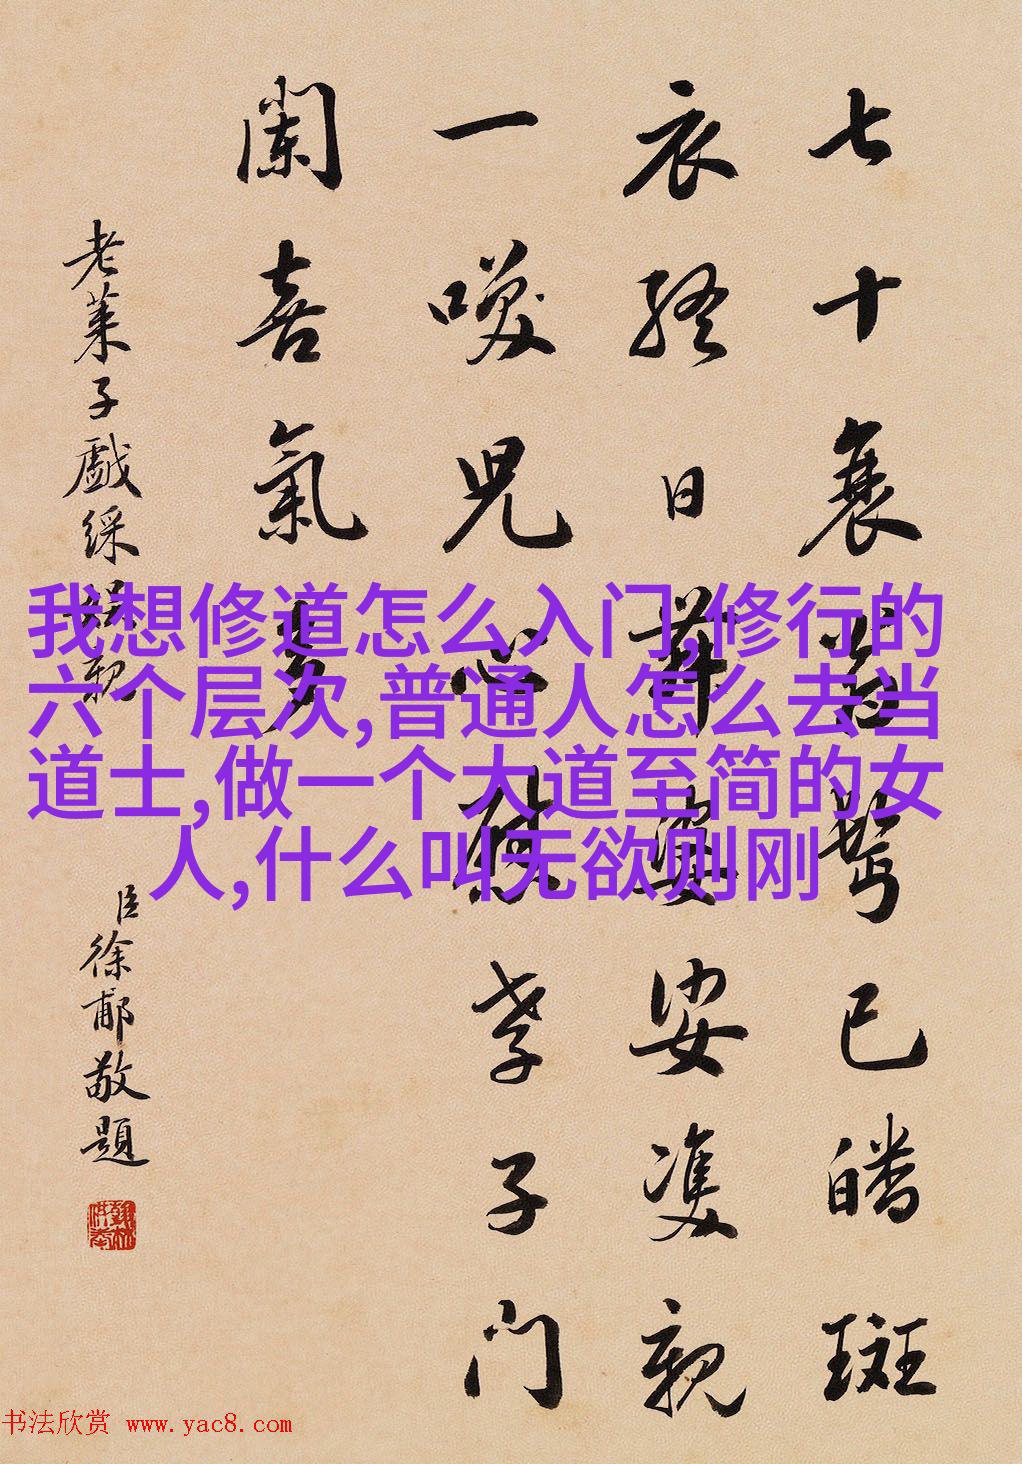 七十衰鬢已皤斑
衣終日舞婆娑雙親
一喚兒心孝子門
闌喜氣多
老萊子戲綵娛親
臣徐郙敬題
我想修道怎么入门,修行的
六个层次,普通人怎么去当
道士,做一个大道至简的女
人,什么叫无欲则刚
书法欣赏 www.yac8.com